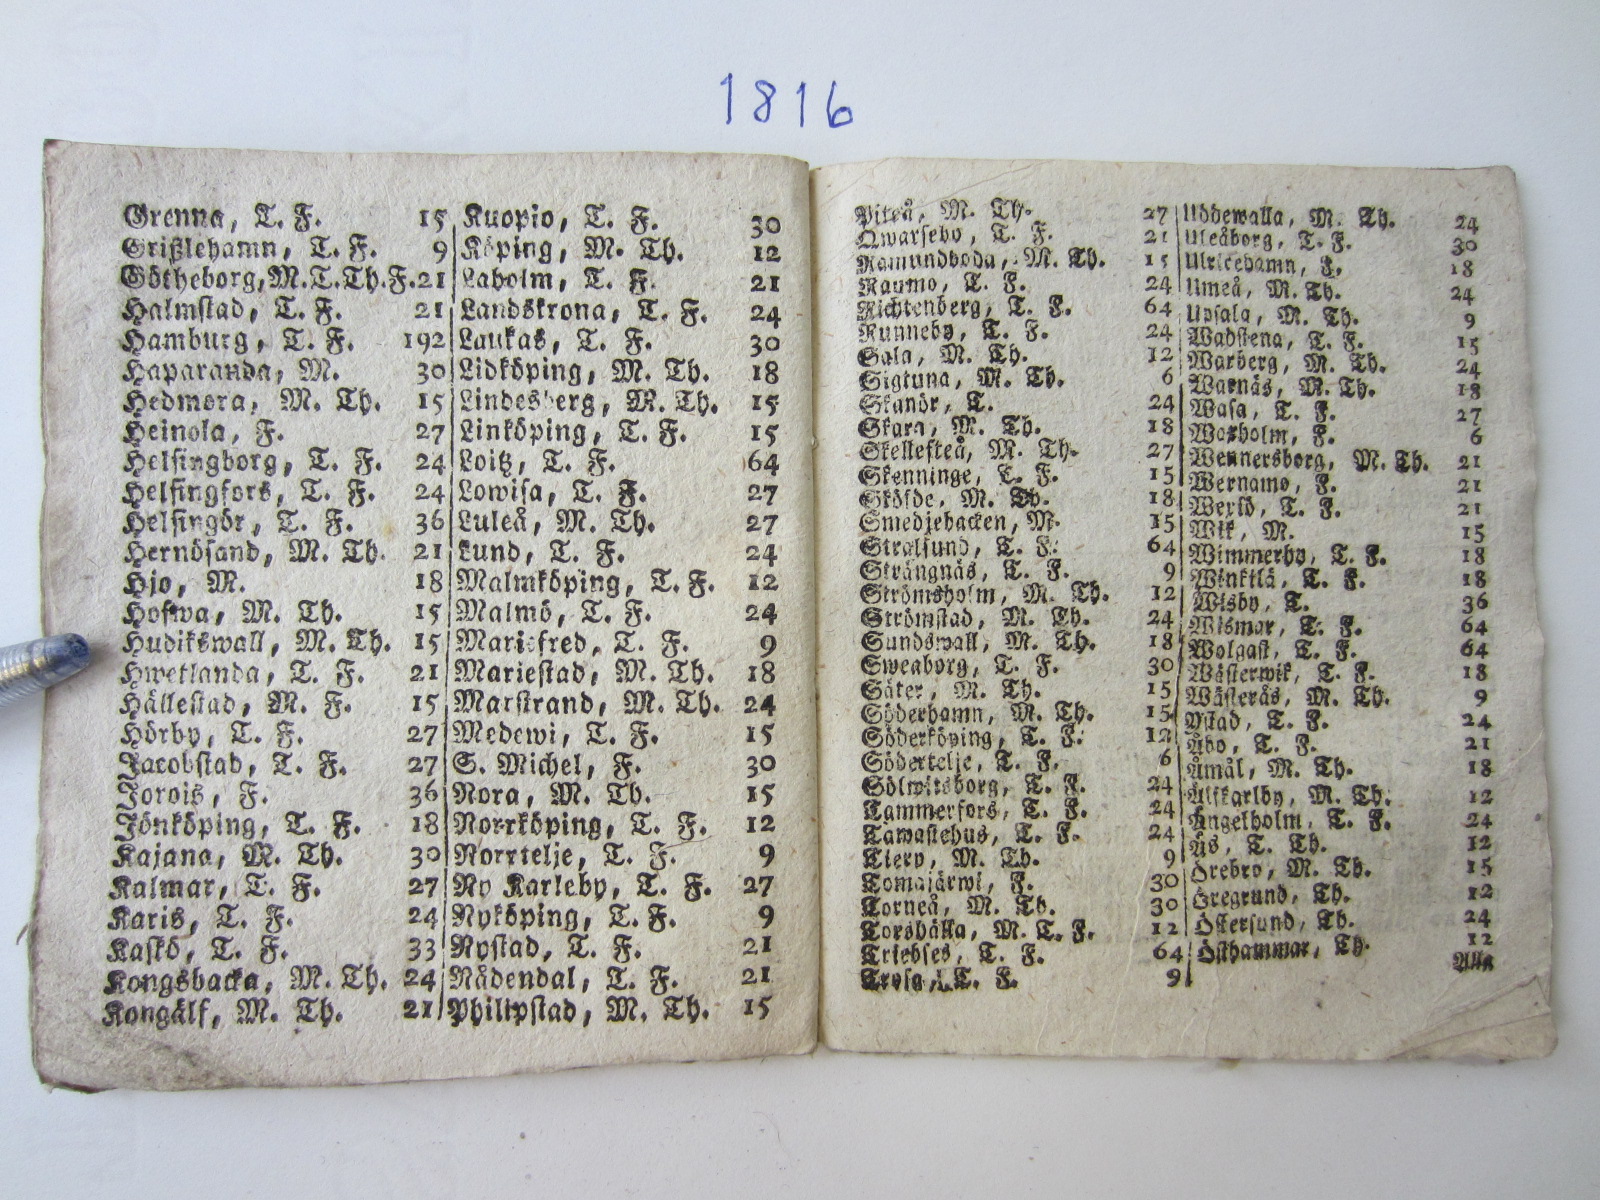 1816
Grenna, T. F. 15
Grißlehamn, T. F. 9
Götheborg, M.T.Th.F. 21
Halmstad, T. F. 21
Hamburg, T. F. 192
Haparanda, M. 30
Hedmora, M. Th. 15
Heinola, F. 27
Helsingborg, T. F. 24
Helsingfors, T. F. 24
Helsingör, T. F. 36
Hernösand, M. Th. 21
Hjo, M. 18
Hofwa, M. Th. 15
Hudikswall, M. Th. 15
Hwetlanda, T. F. 21
Hällestad, M. F. 15
Hörby, T. F. 27
Jacobstad, T. F. 27
Jorois, F. 36
Jönköping, T. F. 18
Kajana, M. Th. 30
Kalmar, T. F. 27
Karis, T. F. 24
Kaskö, T. F. 33
Kongsbacka, M. Th. 24
Kongälf, M. Th. 21
Kuopio, T. F. 30
Köping, M. Th. 12
Laholm, T. F. 21
Landskrona, T. F. 24
Laukas, T. F. 30
Lidköping, M. Th. 18
Lindesberg, M. Th. 15
Linköping, T. F. 15
Loitz, T. F. 64
Lowisa, T. F. 27
Luleå, M. Th. 27
Lund, T. F. 24
Malmköping, T. F. 12
Malmö, T. F. 24
Mariefred, T. F. 9
Mariestad, M. Th. 18
Marstrand, M. Th. 24
Medewi, T. F. 15
S. Michel, F. 30
Nora, M. Th. 15
Norrköping, T. F. 12
Norrtelje, T. F. 9
Ny Karleby, T. F. 27
Nyköping, T. F. 9
Nystad, T. F. 21
Nådendal, T. F. 21
Philipstad, M. Th. 15
Piteå, M. Th. 27
Qwarsebo, T. F. 21
Ramundboda, M. Th. 15
Raumo, T. F. 24
Richtenberg, T. F. 64
Runneby, T. F. 24
Sala, M. Th. 12
Sigtuna, M. Th. 6
Skanör, T. 24
Skara, M. Th. 18
Skellefteå, M. Th. 27
Skenninge, T. F. 15
Sköfde, M. Th. 18
Smedjebacken, M. 15
Stralsund, T. F. 64
Strängnäs, T. F. 9
Strömsholm, M. Th. 12
Strömstad, M. Th. 24
Sundswall, M. Th. 18
Sweaborg, T. F. 30
Säter, M. Th. 15
Söderhamn, M. Th. 15
Söderköping, T. F. 12
Södertelje, T. F. 6
Sölwitsborg, T. F. 24
Tammerfors, T. F. 24
Tawastehus, T. F. 24
Tierp, M. Th. 9
Tomajärwi, F. 30
Torneå, M. Th. 30
Torshälla, M. T. F. 12
Triebses, T. F. 64
Trosa, T. F. 9
Uddewalla, M. Th. 24
Uleåborg, T. F. 30
Ulricehamn, F. 18
Umeå, M. Th. 24
Upsala, M. Th. 9
Wadstena, T. F. 15
Warberg, M. Th. 24
Warnäs, M. Th. 18
Wasa, T. F. 27
Waxholm, F. 6
Wennersborg, M. Th. 21
Wernamo, F. 21
Wexiö, T. F. 21
Wik, M. 15
Wimmerby, T. F. 18
T. F. 18
Wisby, T. 36
Wismar, T. F. 64
Wolgast, T. F. 64
Wästerwik, T. F. 18
Wästerås, M. Th. 9
Ystad, T. F. 24
Åbo, T. F. 21
Åmål, M. Th. 18
Älfkarlby, M. Th. 12
Ängelholm, T. F. 24
Ås, T. Th. 12
Örebro, M. Th. 15
Öregrund, Th. 12
Östersund, Th. 24
Östhammar, Th. 12
Alla